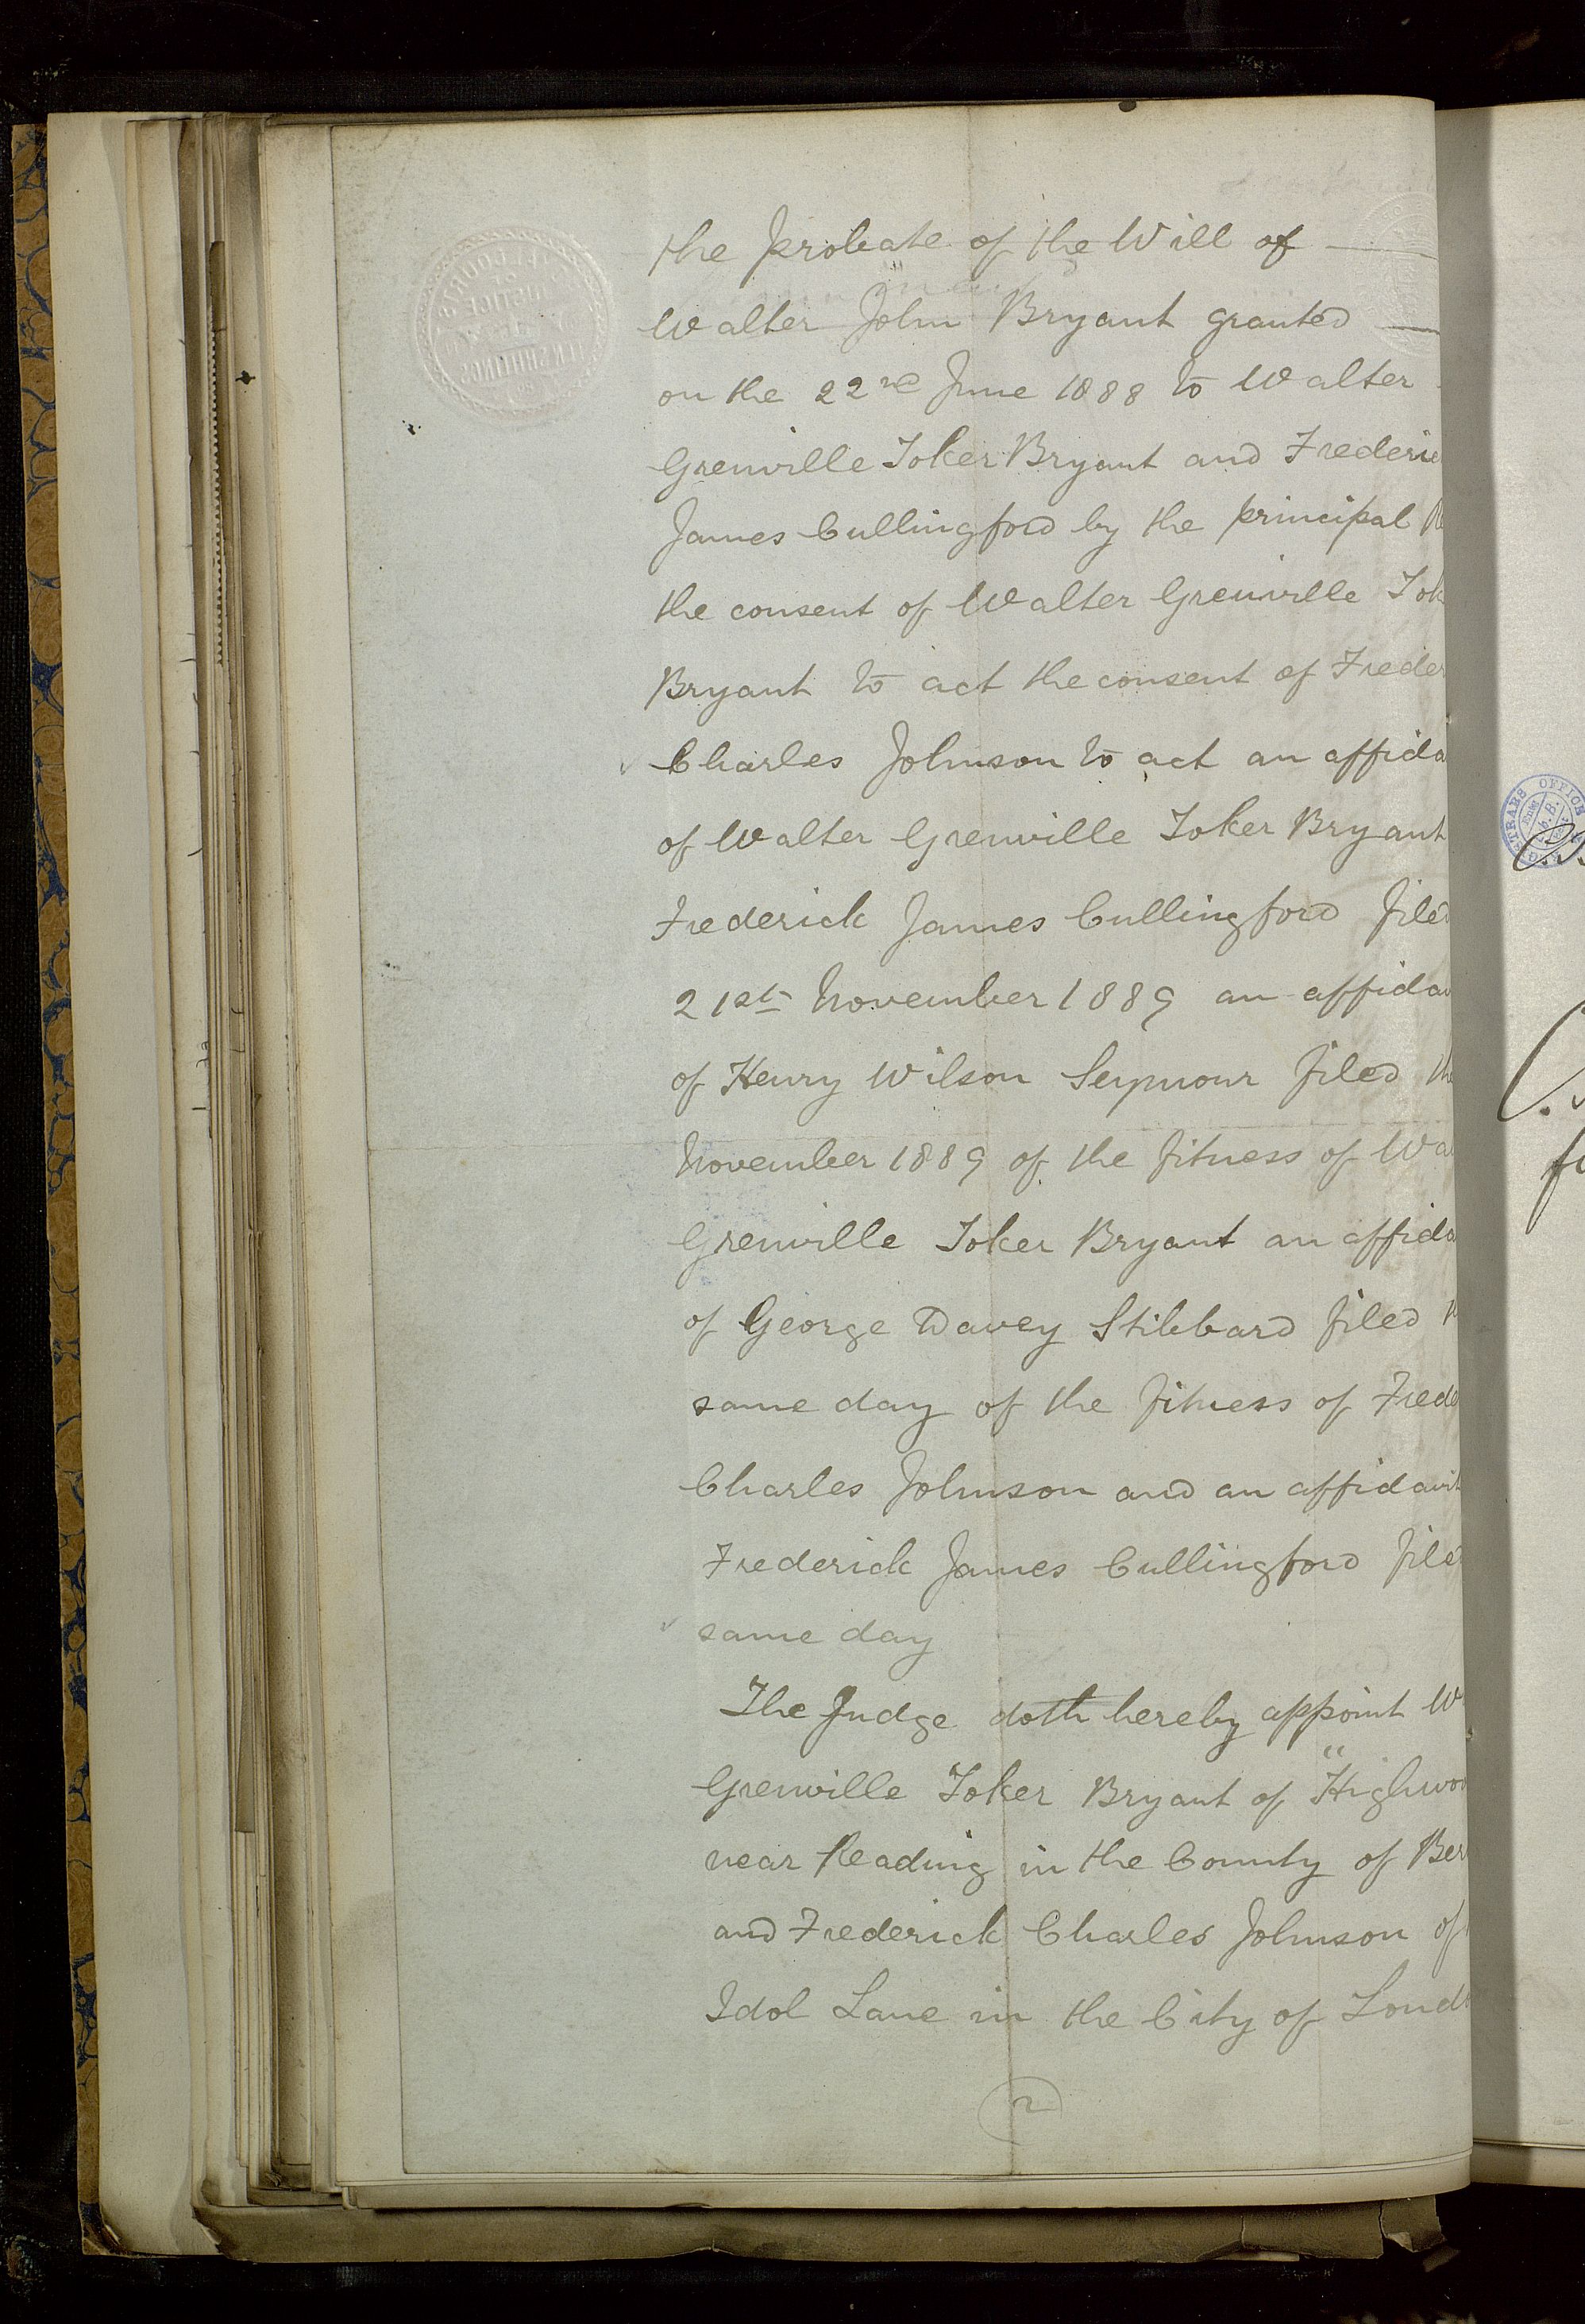 the probate of the Will of
Walter John Bryant granted
on the 22nd June 1888 to Walter
Grenville Toker Bryant and Frederic
James Cullingford by the principal Re
the consent of Walter Grenville Tok
Bryant to act the consent of Freder
Charles Johnson to act an affida
of Walter Grenville Toker Bryant
Frederick James Cullingford filed
21st November 1889 an affidav
of Henry Wilson Seymour filed the
November 1889 of the fitness of Wal
Grenville Toker Bryant an affida
of George Davey Stibbard filed
same day of the fitness of Frede
Charles Johnson and an affidavit
Frederick James Cullingford filed
same day
The Judge doth hereby appoint W
Grenville Toker Bryant of "Highwoo
near Reading in the County of Ber
and Frederick Charles Johnson of
Idol Lane in the City of Londo
2